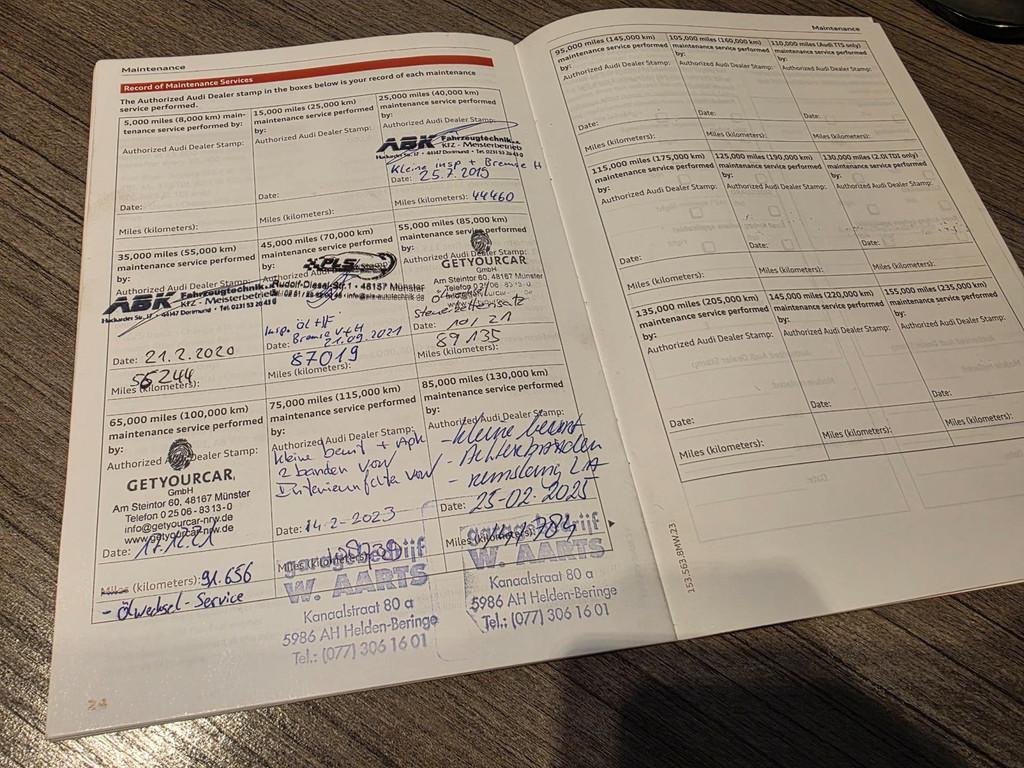 Maintenance
Record of Maintenance Services
The Authorized Audi Dealer stamp in the boxes below is your record of each maintenance
service performed.
5,000 miles (8,000 km) main-
tenance service performed by:
Authorized Audi Dealer Stamp:
Date:
Miles (kilometers):
15,000 miles (25,000 km)
maintenance service performed
by:
Authorized Audi Dealer Stamp:
Date:
Miles (kilometers):
25,000 miles (40,000 km)
maintenance service performed
by:
ABK Fahrzeugtechnik
KFZ - Meisterbetrieb
Insp + Bremse H
Date: 25.7.2019
Miles (kilometers): 44460
35,000 miles (55,000 km)
maintenance service performed
by:
Authorized Audi Dealer Stamp:
ABK Fahrzeugtechnik
KFZ - Meisterbetrieb
Date: 21.2.2020
Miles (kilometers):
56244
45,000 miles (70,000 km)
maintenance service performed
by:
Authorized Audi Dealer Stamp:
XPLS
Rudolf-Diesel-Str. 1 · 48157 Münster
Insp. Öl + IF
Bremse V+H
Date: 21.09.2021
87019
Miles (kilometers):
55,000 miles (85,000 km)
maintenance service performed
by:
Authorized Audi Dealer Stamp:
GETYOURCAR
GmbH
Am Steintor 60, 48167 Münster
Telefon 0 25 06 - 8313-0
Ölwechsel
Steuerkettensatz
Date: 10/21
89135
Miles (kilometers):
65,000 miles (100,000 km)
maintenance service performed
by:
Authorized Audi Dealer Stamp:
GETYOURCAR
GmbH
Am Steintor 60, 48167 Münster
Telefon 0 25 06 - 8313-0
info@getyourcar-nrw.de
www.getyourcar-nrw.de
Date: 17.12.21
Miles (kilometers): 91.656
- Ölwechsel - Service
75,000 miles (115,000 km)
maintenance service performed
by:
Authorized Audi Dealer Stamp:
kleine beurt + Apk
2 banden voor
Date: 14-2-2023
Miles (kilometers):
garagebedrijf
W. AARTS
Kanaalstraat 80 a
5986 AH Helden-Beringe
Tel.: (077) 306 16 01
85,000 miles (130,000 km)
maintenance service performed
by:
Authorized Audi Dealer Stamp:
- kleine beurt
- Achterbanden
- remslang
Date: 25-02-2025
Miles (kilometers):
garagebedrijf
W. AARTS
Kanaalstraat 80 a
5986 AH Helden-Beringe
Tel.: (077) 306 16 01
24
Maintenance
95,000 miles (145,000 km)
maintenance service performed
by:
Authorized Audi Dealer Stamp:
Date:
Miles (kilometers):
105,000 miles (160,000 km)
maintenance service performed
by:
Authorized Audi Dealer Stamp:
Date:
Miles (kilometers):
110,000 miles (Audi TTS only)
maintenance service performed
by:
Authorized Audi Dealer Stamp:
Date:
Miles (kilometers):
115,000 miles (175,000 km)
maintenance service performed
by:
Authorized Audi Dealer Stamp:
Date:
Miles (kilometers):
125,000 miles (190,000 km)
maintenance service performed
by:
Authorized Audi Dealer Stamp:
Date:
Miles (kilometers):
130,000 miles (2.0 TDI only)
maintenance service performed
by:
Authorized Audi Dealer Stamp:
Date:
Miles (kilometers):
135,000 miles (205,000 km)
maintenance service performed
by:
Authorized Audi Dealer Stamp:
Date:
Miles (kilometers):
145,000 miles (220,000 km)
maintenance service performed
by:
Authorized Audi Dealer Stamp:
Date:
Miles (kilometers):
155,000 miles (235,000 km)
maintenance service performed
by:
Authorized Audi Dealer Stamp:
Date:
Miles (kilometers):
153.563.8MW.23